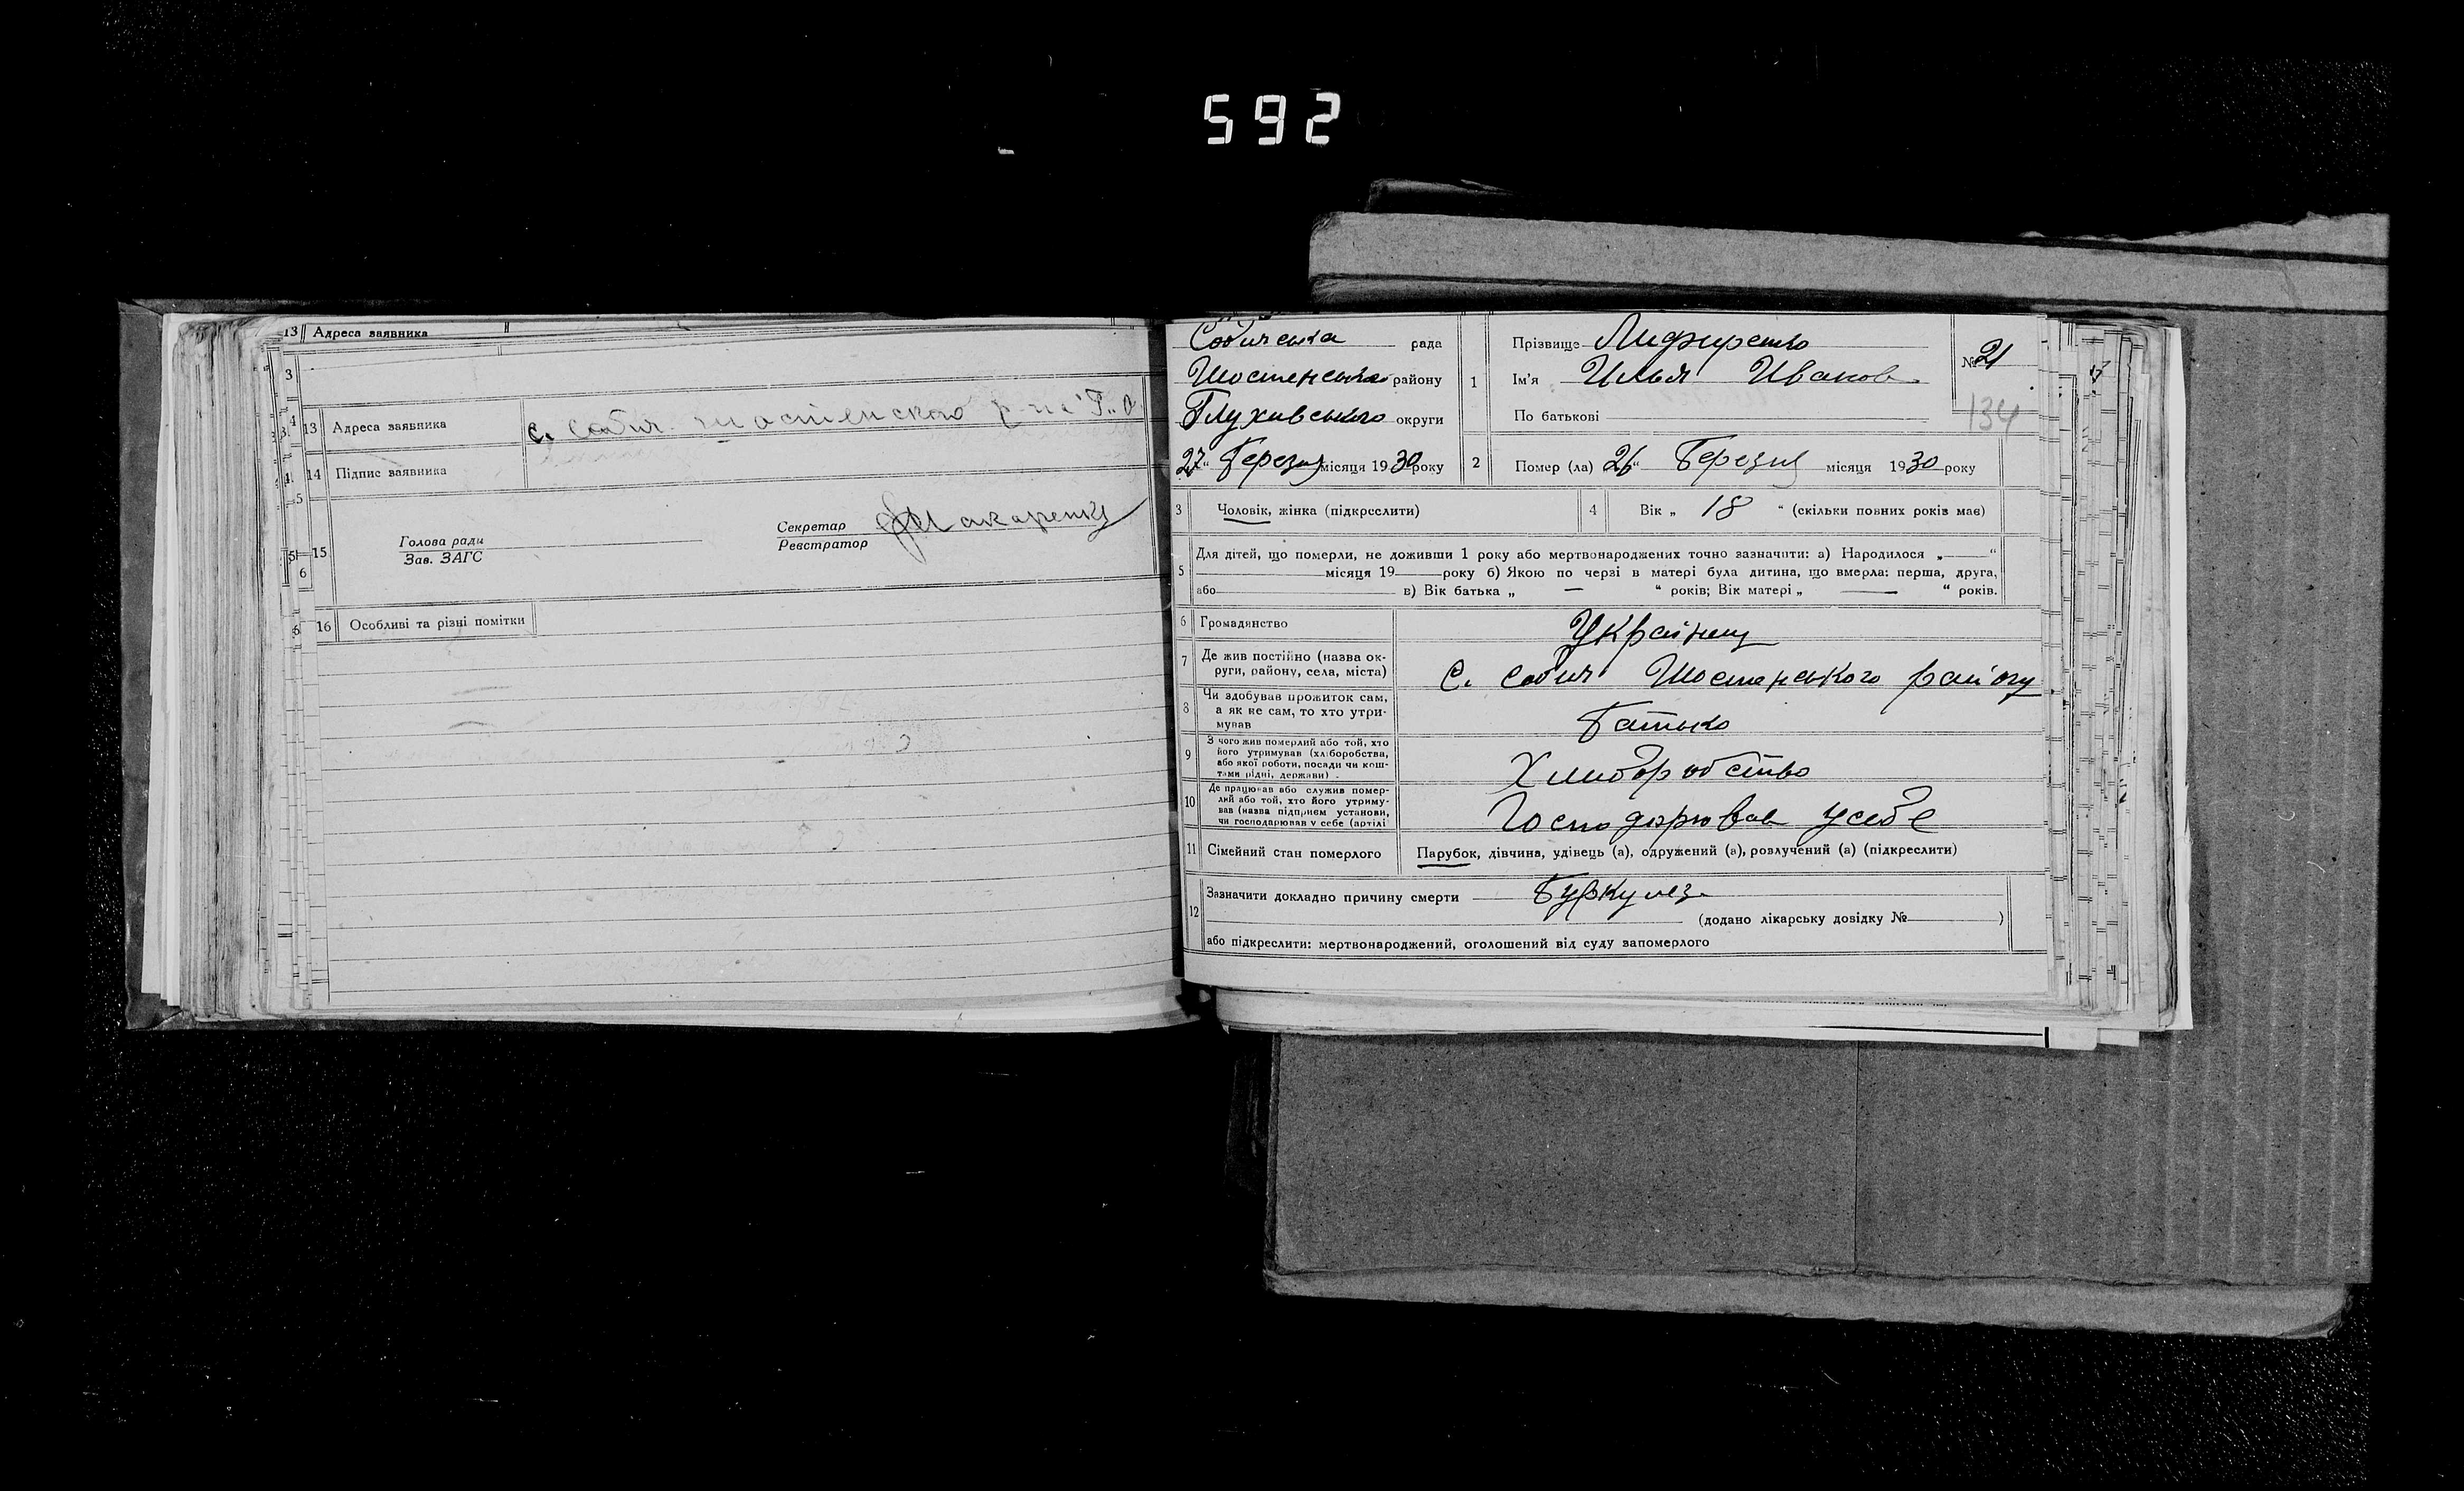 592
13 Адреса заявника
3
4 13 Адреса заявника с. Собич шостенского р-на Г.. О
14 Підпис заявника
5
15 Голова ради
Зав. ЗАГС
Секретар
Реєстратор Макаренко
6
16 Особливі та різні помітки
Собичська рада
Шостенського району
Глухивського округи
27 " Березня місяця 1930 року
1 Прізвище
Ім'я Илья Иванов
По батькові
№ 21
134
2 Помер (ла) 26 " Березня місяця 1930 року
3 Чоловік, жінка (підкреслити)
4 Вік „ 18 “ (скільки повних років має)
5 Для дітей, що померли, не доживши 1 року або мертвонароджених точно зазначити: а) Народилося „ — “
місяця 19 року б) Якою по черзі в матері була дитина, що вмерла: перша, друга,
або в) Вік батька „ — “ років; Вік матері „ — “ років.
6 Громадянство Українец
7 Де жив постійно (назва ок-
руги, району, села, міста) С. Собич Шостенського району
8 Чи здобував прожиток сам,
а як не сам, то хто утри-
мував Батько
9 З чого жив померлий або той, хто
його утримував (хліборобства,
або якої роботи, посади чи кош-
тами рідні, держави) Хлиборобство
10 Де працював або служив помер-
лий або той, хто його утриму-
вав (назва підприєм установи,
чи господарював у себе (артілі Господорював усебе
11 Сімейний стан померлого Парубок, дівчина, удівець (а), одружений (а), розлучений (а) (підкреслити)
12 Зазначити докладно причину смерти Буркулез
(додано лікарську довідку № )
або підкреслити: мертвонароджений, оголошений від суду запомерлого